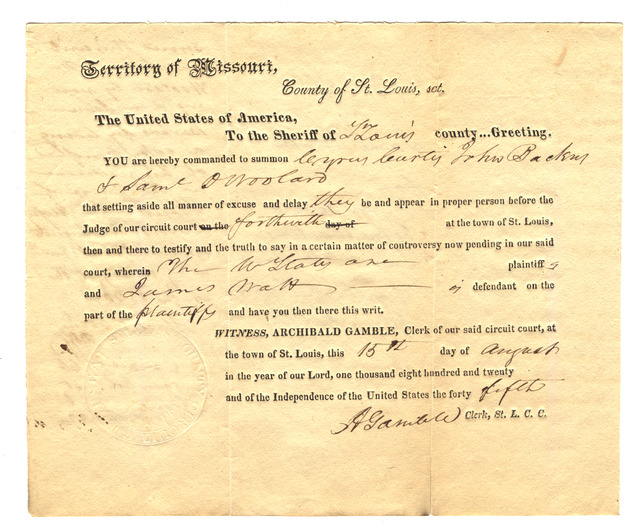 Territory of Missouri,
County of St. Louis, sct.
The United States of America,
To the Sheriff of St Louis county...Greeting.
YOU are hereby commanded to summon Cyrus Curtis John Backus
& Saml D Woolard
that setting aside all manner of excuse and delay they be and appear in proper person before the
Judge of our circuit court on the forthwith day of at the town of St. Louis,
then and there to testify and the truth to say in a certain matter of controversy now pending in our said
court, wherein The U States are plaintiff s
and James Watt is defendant on the
part of the plaintiffs and have you then there this writ.
WITNESS, ARCHIBALD GAMBLE, Clerk of our said circuit court, at
the town of St. Louis, this 15th day of August
in the year of our Lord, one thousand eight hundred and twenty
and of the Independence of the United States the forty fifth
A Gamble Clerk, St. L. C. C.